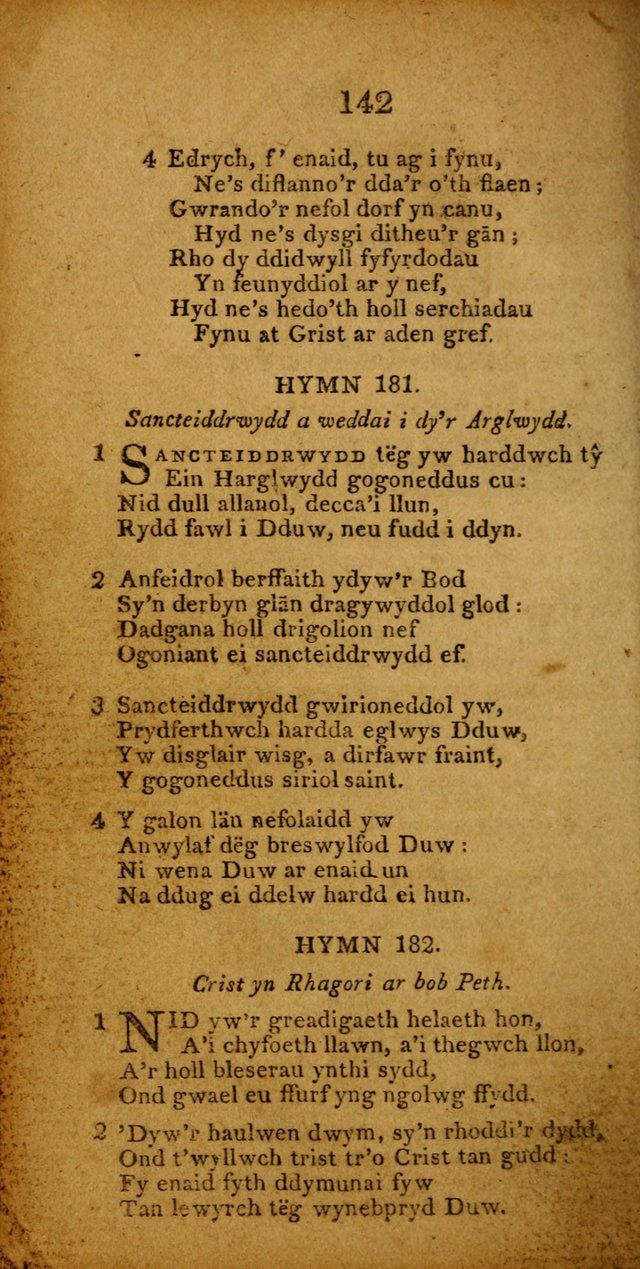 142
4 Edrych, f' enaid, tu ag i fynu,
Ne's diflanno'r dda'r o'th flaen;
Gwrando'r nefol dorf yn canu,
Hyd ne's dysgi ditheu'r gän;
Rho dy ddidwyll fyfyrdodau
Yn feunyddiol ar y nef,
Hyd ne's hedo'th holl serchiadau
Fynu at Grist ar aden gref.
HYMN 181.
Sancteiddrwydd a weddai i dy'r Arglwydd.
1 SANCTEIDDRWYDD tëg yw harddwch tŷ
Ein Harglwydd gogoneddus cu:
Nid dull allanol, decca'i llun,
Rydd fawl i Dduw, neu fudd i ddyn.
2 Anfeidrol berffaith ydyw'r Bod
Sy'n derbyn glän dragywyddol glod:
Dadgana holl drigolion nef
Ogoniant ei sancteiddrwydd ef.
3 Sancteiddrwydd gwirioneddol yw,
Prydferthwch hardda eglwys Dduw,
Yw disglair wisg, a dirfawr fraint,
Y gogoneddus siriol saint.
4 Y galon län nefolaidd yw
Anwylaf dëg breswylfod Duw:
Ni wena Duw ar enaid un
Na ddug ei ddelw hardd ei hun.
HYMN 182.
Crist yn Rhagori ar bob Peth.
1 NID yw'r greadigaeth helaeth hon,
A'i chyfoeth llawn, a'i thegwch llon,
A'r holl bleserau ynthi sydd,
Ond gwael eu ffurf yng ngolwg ffydd.
2 'Dyw'r haulwen dwym, sy'n rhoddi'r dydd,
Ond t'wyllwch trist tr'o Crist tan gudd:
Fy enaid fyth ddymunai fyw
Tan lewyrch tëg wynebpryd Duw.